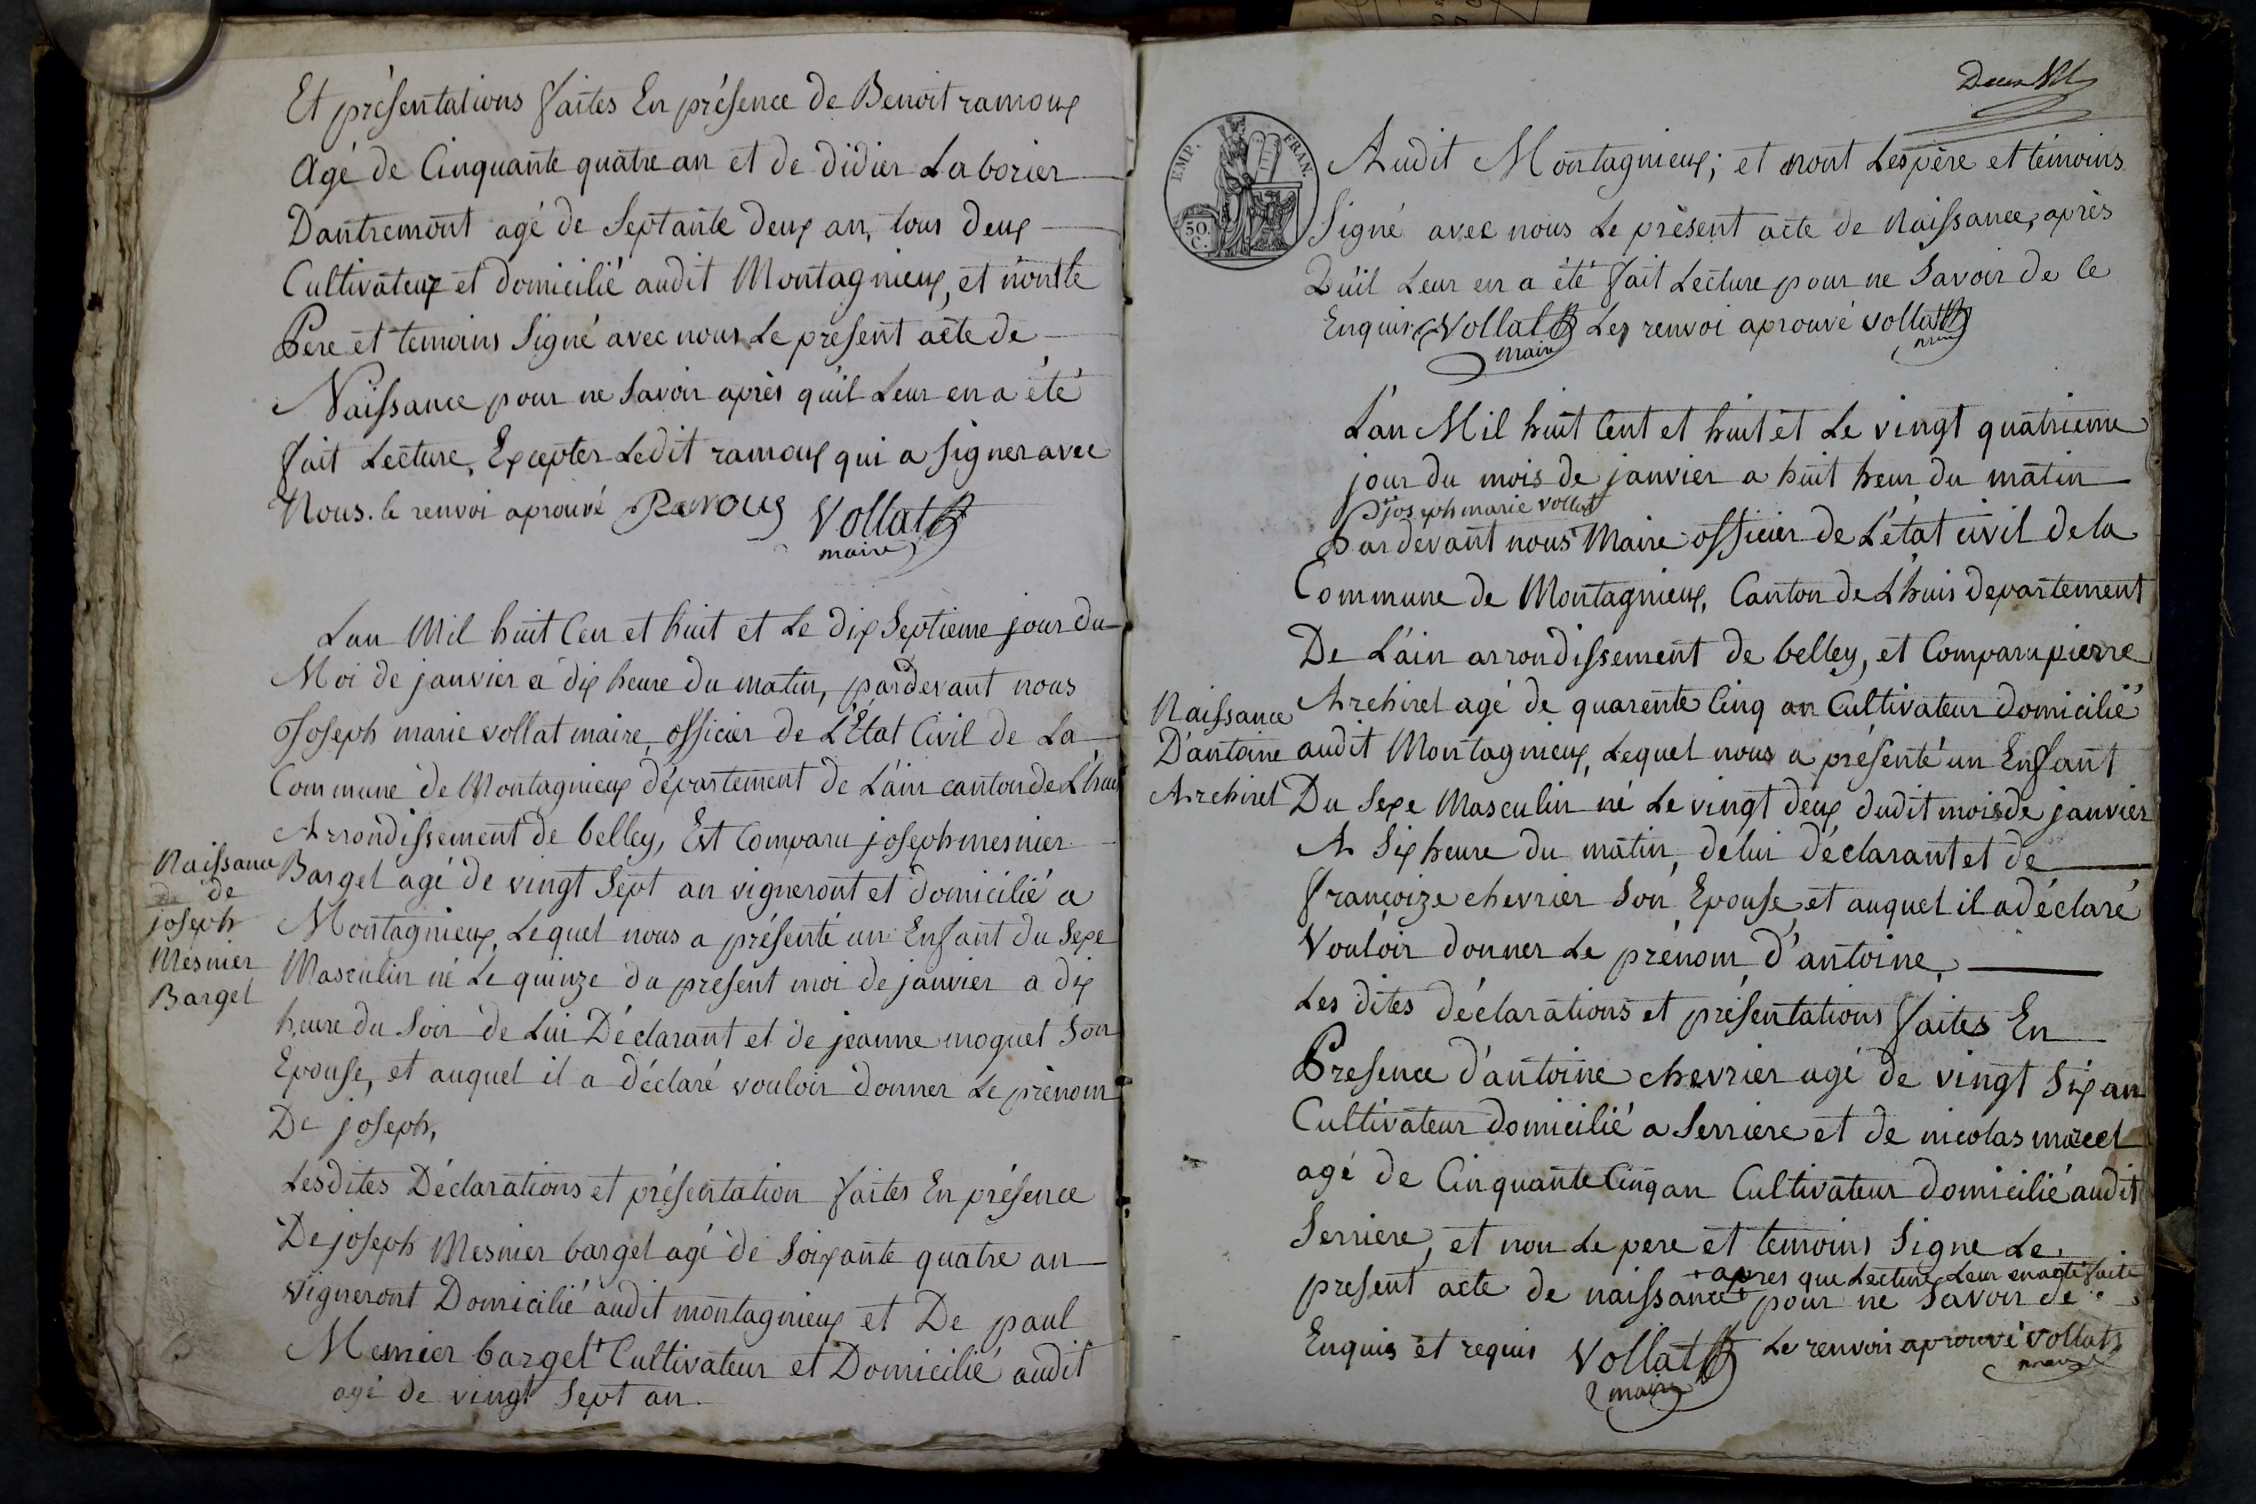 Et présentations faites En présence de Benoit ramoux
Agé de Cinquante quatre an et de didier Laborier
Dantremont agé de Septante deux an, tous deux
Cultivateux et domicilié audit Montagnieux, et nont le
Pere et temoins Signé avec nous Le présent acte de
Naissance pour ne Savoir après qu'il Leur en a été
fait Lecture, Excepter Ledit ramoux qui a Signer avec
Nous. le renvoi aprouvé Ramoux Vollat
maire
Lan Mil huit Cen et huit et Le dix Septieme jour du
Moi de janvier a dix heure du matin, pardevant nous
Joseph marie vollat maire, officier de L'État Civil de La
Commune de Montagnieux département de L'ain canton de L'huis
Arrondissement de belley, Est Comparu joseph mesnier
Bargel agé de vingt Sept an vigneront et domicilié a
Montagnieux, Lequel nous a présenté un Enfant du Sexe
Masculin né Le quinze du présent moi de janvier a dix
heure du Soir de Lui Déclarant et de jeanne moguet Son
Epouse, et auquel il a déclaré vouloir donner Le prénom
De joseph,
Lesdites Déclarations et présentation faites En présence
De joseph Mesnier bargel agé de Soixante quatre an
vigneront Domicilié audit montagnieux et De paul
Mesnier bargel + Cultivateur et Domicilié audit
agé de vingt Sept an.
Naissance
de
joseph
Mesnier
Bargel
EMP. FRAN.
50.
C.
Audit Montagnieux; et nont Les père et témoins
Signé avec nous Le présent acte de Naissance, après
Qu'il Leur en a été fait Lecture pour ne Savoir de Ce
Enquis Vollat Les renvoi aprouvé vollat
maire maire
L'an Mil huit Cent et huit et Le vingt quatrieme
jour du mois de janvier a huit heur du matin
joseph marie vollat
Pardevant nous Maire officier de L'état civil de la
Commune de Montagnieux, Canton de L'huis departement
De L'ain arrondissement de belley, et Comparu pierre
Archiret agé de quarente Cinq an Cultivateur domicilié
audit Montagnieux, Lequel nous a présenté un Enfant
Du Sexe Masculin né Le vingt deux dudit mois de janvier
A Six heure du matin, de lui déclarant et de
françoize chevrier Son Epouse, et auquel il a déclaré
Vouloir donner Le prénom d'antoine,
Les dites déclarations et présentations faites En
Presence d'antoine chevrier agé de vingt Six an
Cultivateur domicilié a Serriere et de nicolas
agé de Cinquante Cinq an Cultivateur domicilié audit
Serriere, et non Le pere et temoins Signe Le
+ apres que Lecture Leur en a été faite
present acte de naissance + pour ne Savoir de
Enquis et requis Vollat Le renvoi aprouvé vollat
maire maire
Naissance
D'antoine
Archiret